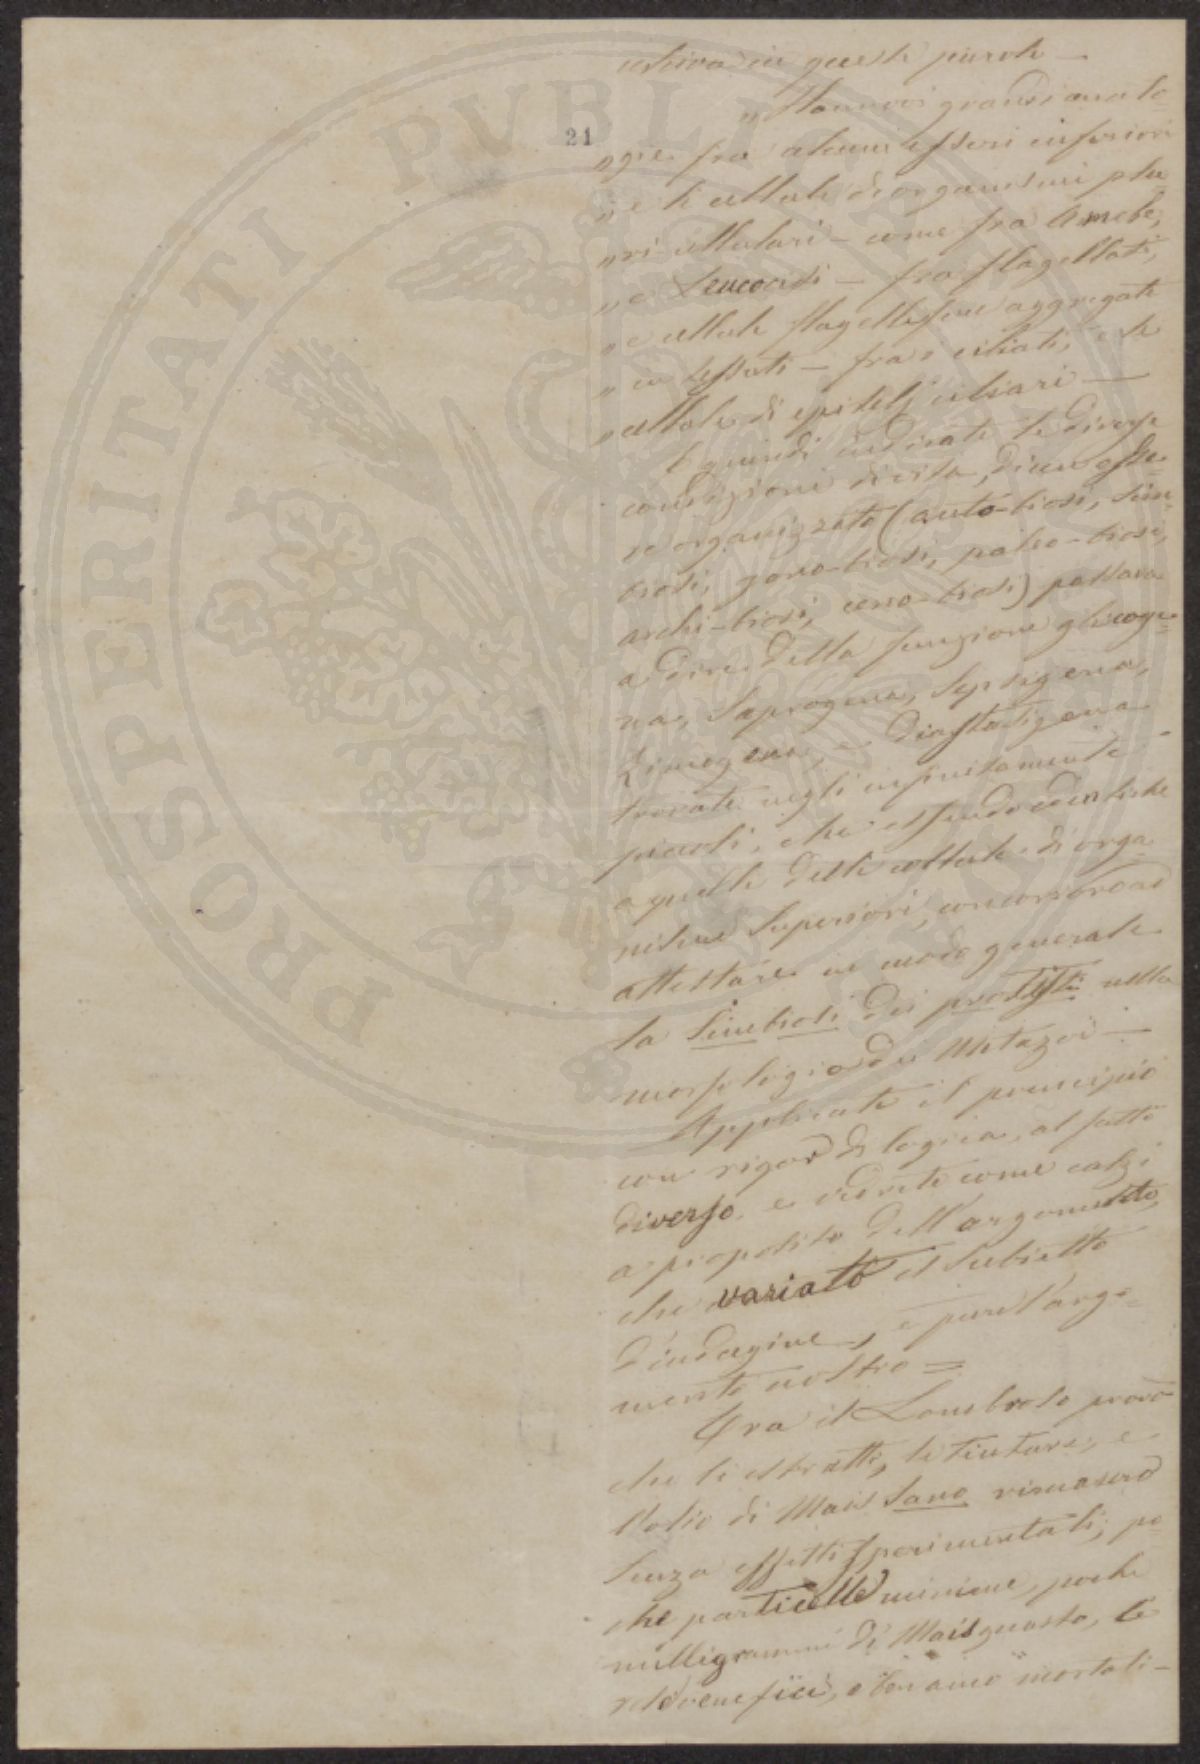 in queste parole —
21
„ Hannovi grandi analo=
„ gie fra alcuni esseri inferiori
„ e le cellule di organismi plu
„ ri-cellulari — come fra Amebe,
„ e Leucociti — fra flagellati,
„ e cellule flagellifere aggregate
„ in tessuti — fra ciliati, e le
„ cellule di epitelj ciliari —
E quindi indicate le diverse
condizioni di vita, di un esse=
re organizzato (auto-biosi, sim
biosi, gono-biosi, paleo-biosi,
archi-biosi, ceno-biosi) passava
a dire della funzione glicoge=
na, Saprogena, Sepsigena,
Zimogena, e diastatigena
trovate negli infinitamente
piccoli, che essendo identiche
a quelle delle cellule di orga
nismi Superiori, concorsero ad
attestare in modo generale
la Simbiosi dei protisti nella
morfologia dei Metazoi —
Applicate il principio
con rigor di logica, al fatto
diverso e vedrete come calzi
a proposito dell'argomento,
che variato il Subietto
d'indagine, è pure l'argo=
mento nostro =
Ora il Lombroso provò
che li estratti, le tinture, e
l'olio di Mais Sano rimasero
Senza effetti Sperimentali; po=
che particelle minime, poche
milligrammi di Mais guasto, le
rese venefici, e mortali —